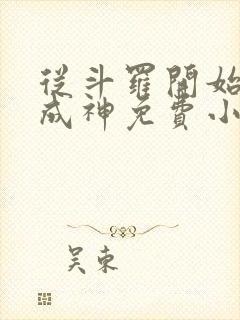 從斗羅開始
成神免費小
吴東